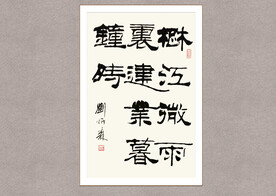 楚江微雨
裏建業暮
鐘時
劉炳森